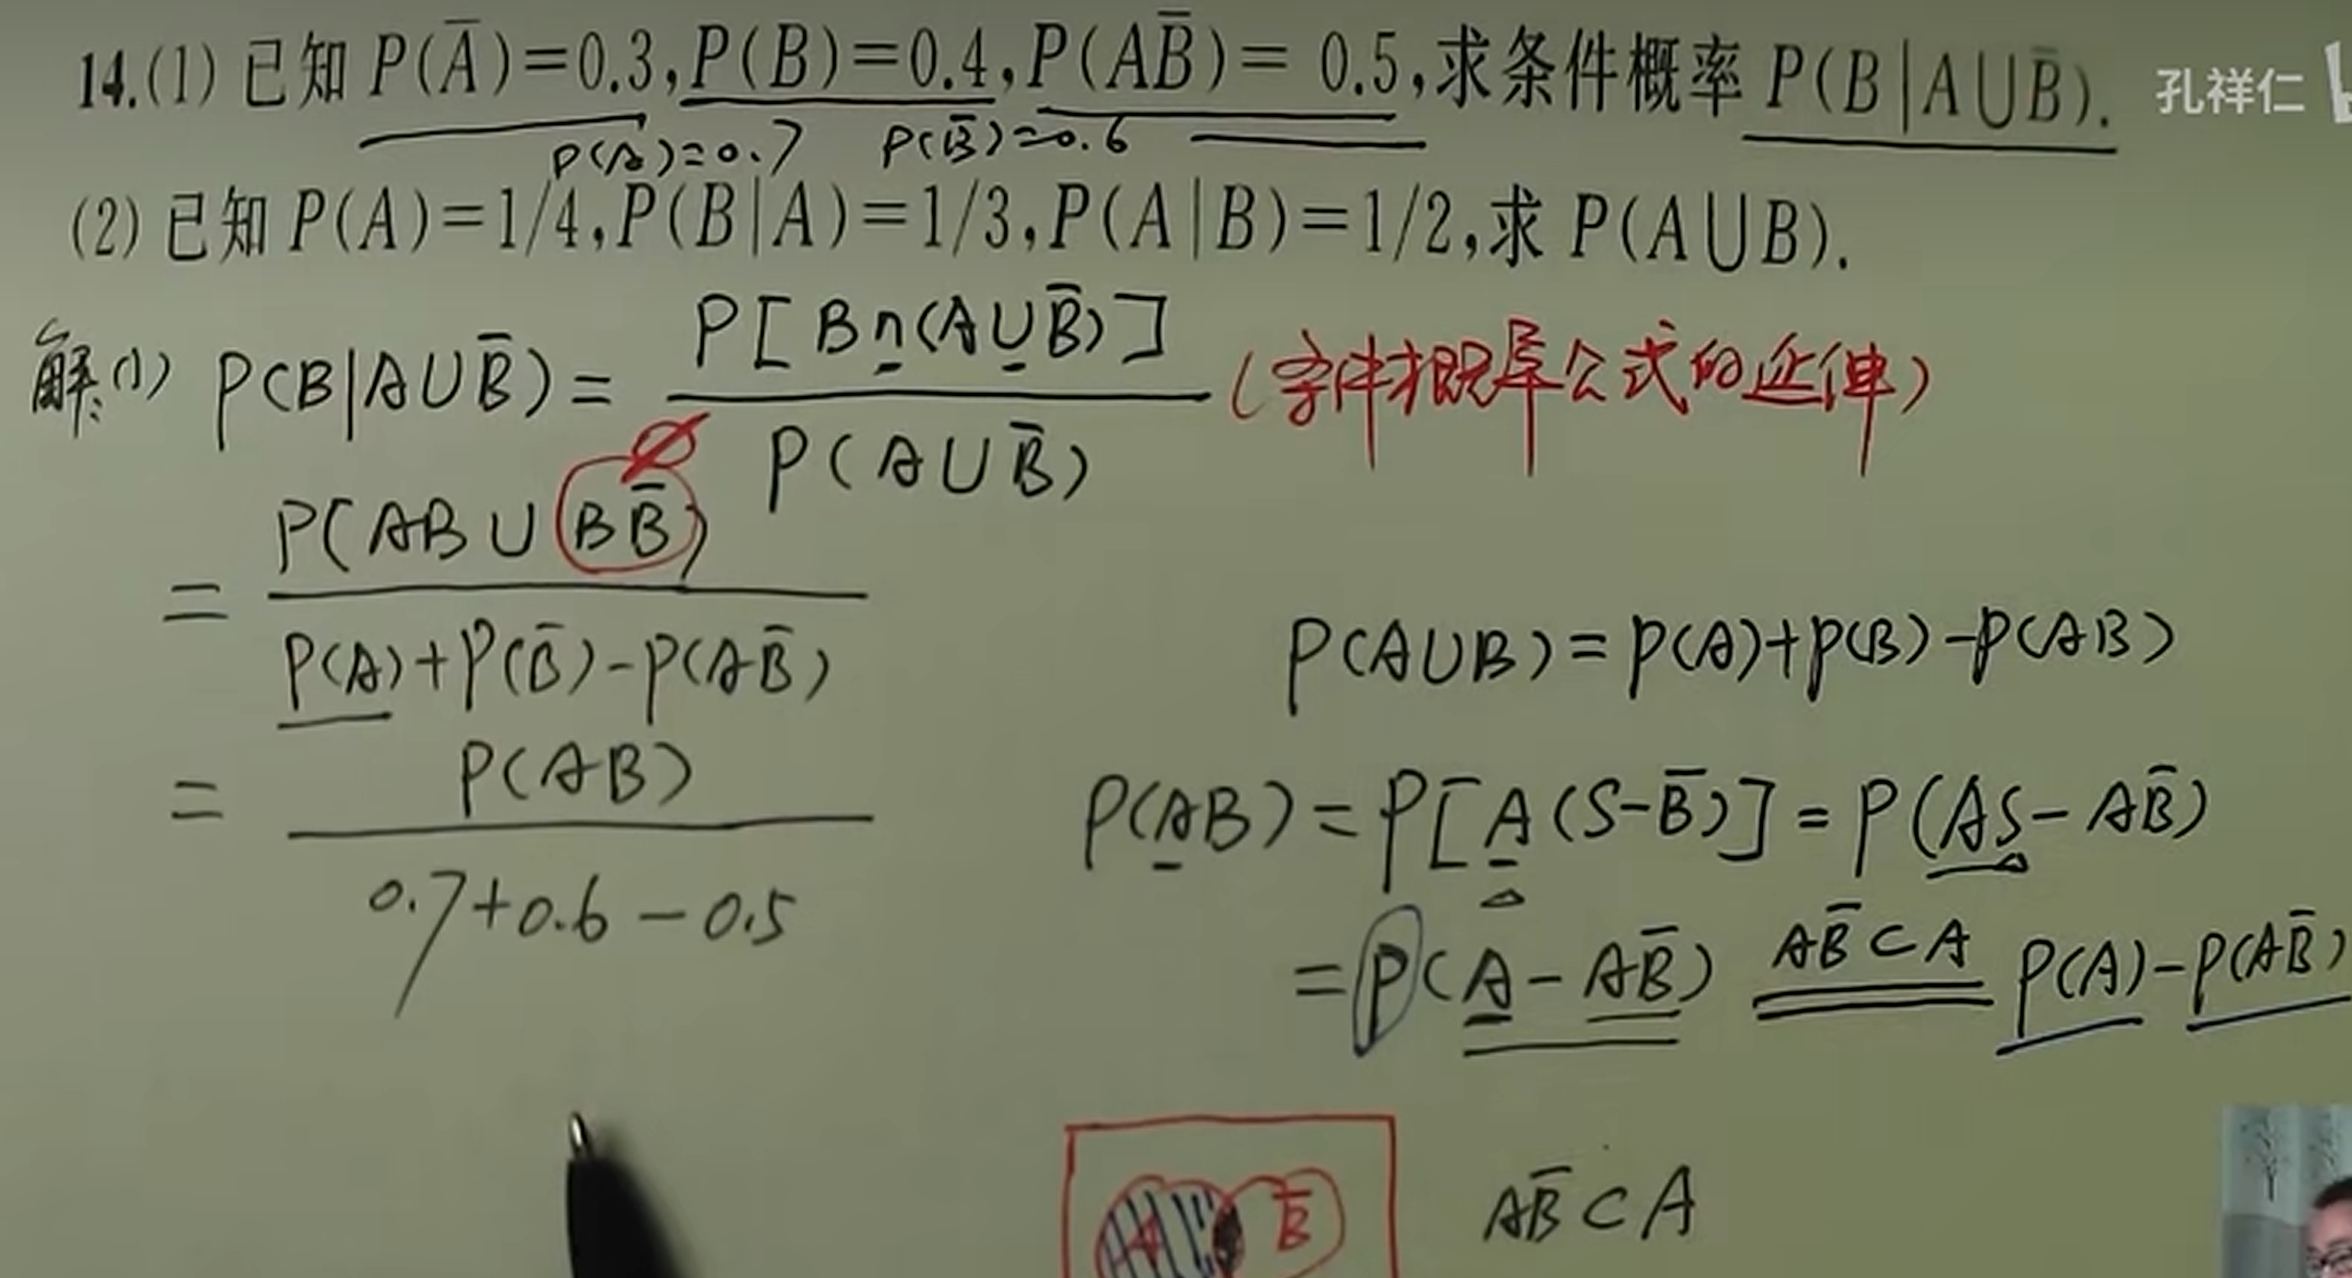 14.(1) 已知 P(A̅)=0.3,P(B)=0.4,P(AB̅)= 0.5,求条件概率 P(B|A∪B̅).
孔祥仁
P(A)=0.7 P(B̅)=0.6
(2) 已知 P(A)=1/4,P(B|A)=1/3,P(A|B)=1/2,求 P(A∪B).
解:(1) P(B|A∪B̅)= P[B∩(A∪B̅)] / P(A∪B̅) (条件概率公式的延伸)
∅
= P(AB∪BB̅) / P(A)+P(B̅)-P(AB̅)
P(A∪B)=P(A)+P(B)-P(AB)
= P(AB) / 0.7+0.6-0.5
P(AB)=P[A(S-B̅)]=P(AS-AB̅)
=P(A-AB̅) AB̅⊂A P(A)-P(AB̅)
A B̅
AB̅⊂A